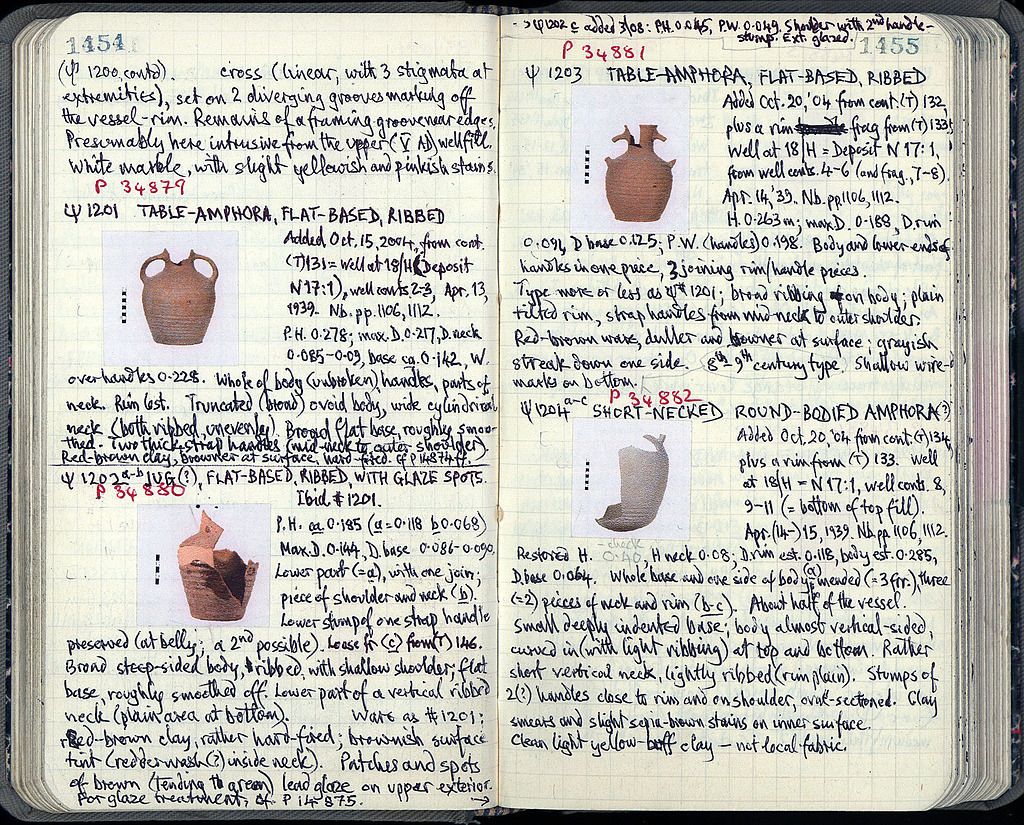 1454
(Ψ 1200, contd). cross (linear, with 3 stigmata at
extremities), set on 2 diverging grooves marking off
the vessel-rim. Remains of a framing groove near edges.
Presumably here intrusive from the upper (V AD) well fill.
White marble, with slight yellowish and pinkish stains.
P 34879
Ψ 1201 TABLE-AMPHORA, FLAT-BASED, RIBBED
Added Oct. 15, 2004, from cont.
(T) 131 = Well at 18/H (Deposit
N 17:1), well conts. 2-3, Apr. 13,
1939. Nb. pp. 1106, 1112.
P.H. 0.278; max. D. 0.217, D. neck
0.085-0.09, base ca. 0.142, W.
over handles 0.228. Whole of body (unbroken), handles, parts of
neck. Rim lost. Truncated (broad) ovoid body, wide cylindrical
neck (both ribbed, unevenly). Broad flat base, roughly smoo-
thed. Two thick strap handles (mid-neck to outer shoulder).
Red-brown clay, browner at surface, hard-fired. cf P 14874 ff.
Ψ 1202 a-b JUG (?), FLAT-BASED, RIBBED, WITH GLAZE SPOTS.
P 34880
Ibid # 1201.
P.H. ca 0.185 (a = 0.118 b 0.068)
Max. D. 0.144, D. base 0.086-0.090.
Lower part (= a), with one join;
piece of shoulder and neck (b).
Lower stump of one strap handle
preserved (at belly; a 2nd possible). Loose fr (c) from (T) 146.
Broad steep-sided body, ribbed, with shallow shoulder; flat
base, roughly smoothed off. Lower part of a vertical ribbed
neck (plain area at bottom). Ware as # 1201:
Red-brown clay, rather hard-fired; brownish surface
tint (redder wash (?) inside neck). Patches and spots
of brown (tending to green) lead glaze on upper exterior.
For glaze treatment, cf. P 14875. →
-> Ψ 1202 c added 3/08: P.H. 0.045, P.W. 0.049. Shoulder with 2nd handle-
stump. Ext. glazed.
1455
P 34881
Ψ 1203 TABLE-AMPHORA, FLAT-BASED, RIBBED
Added Oct. 20, '04 from cont. (T) 132
plus a rim frag from (T) 133.
Well at 18/H = Deposit N 17:1,
from well conts. 4-6 (and frag., 7-8).
Apr. 14, '39. Nb. pp 1106, 1112.
H. 0.263 m; max D. 0.188, D. rim
0.091, D base 0.125; P.W. (handles) 0.198. Body and lower ends of
handles in one piece, 3 joining rim/handle pieces.
Type more or less as Ψ # 1201; broad ribbing on body; plain
tilted rim, strap handles from mid-neck to outer shoulder.
Red-brown ware, duller and browner at surface; grayish
streak down one side. 8th-9th century type. Shallow wire-
marks on bottom.
P 34882
Ψ 1204 a-c SHORT-NECKED ROUND-BODIED AMPHORA (?)
Added Oct. 20, '04 from cont. (T) 134,
plus a rim from (T) 133. Well
at 18/H = N 17:1, well conts. 8,
9-11 (= bottom of top fill).
Apr. (14-) 15, 1939. Nb. pp 1106, 1112.
- check
Restored H. 0.40, H neck 0.08; D. rim est. 0.118, body est. 0.285,
D. base 0.064. Whole base and one side of body (a), mended (= 3 frr.), three
(= 2) pieces of neck and rim (b-c). About half of the vessel.
Small deeply indented base; body almost vertical-sided,
curved in (with light ribbing) at top and bottom. Rather
short vertical neck, lightly ribbed (rim plain). Stumps of
2(?) handles close to rim and on shoulder, oval-sectioned. Clay
smears and slight sepia-brown stains on inner surface.
Clean light yellow-buff clay – not local fabric.